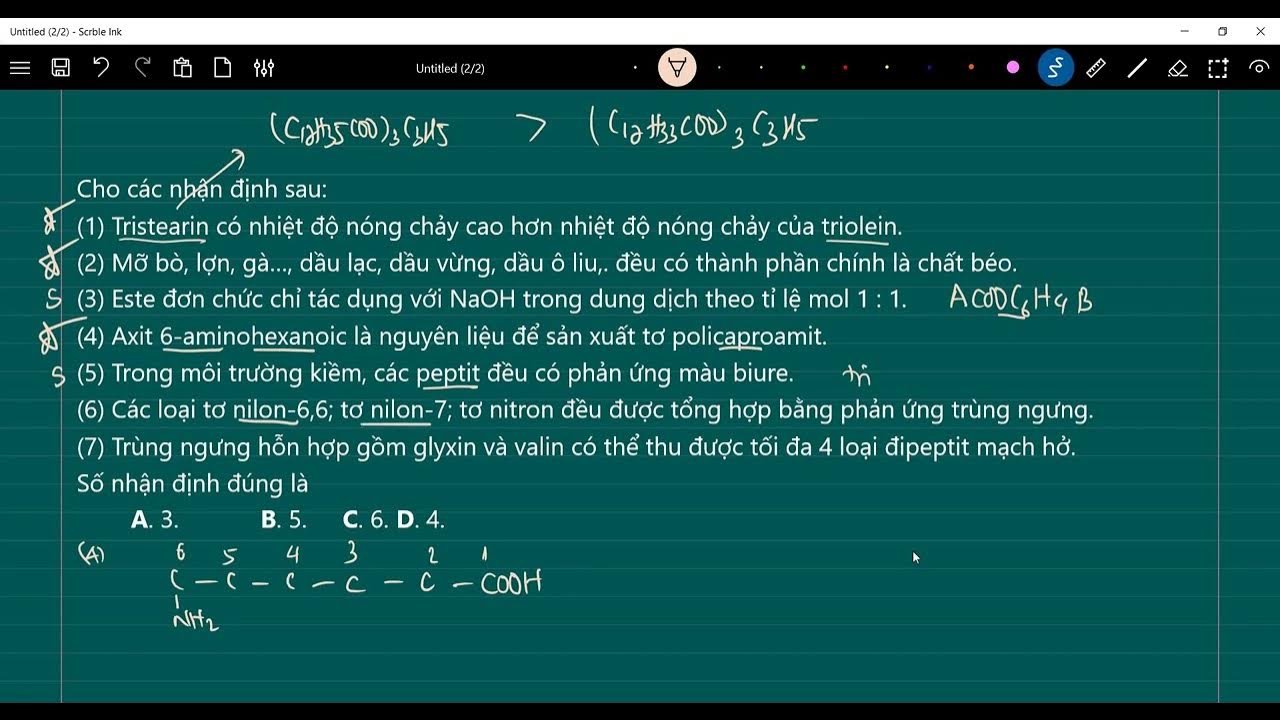 Untitled (2/2) - Scrble Ink
Untitled (2/2)
(C17H35COO)3C3H5 > (C17H33COO)3C3H5
Cho các nhận định sau:
(1) Tristearin có nhiệt độ nóng chảy cao hơn nhiệt độ nóng chảy của triolein.
(2) Mỡ bò, lợn, gà..., dầu lạc, dầu vừng, dầu ô liu,. đều có thành phần chính là chất béo.
S (3) Este đơn chức chỉ tác dụng với NaOH trong dung dịch theo tỉ lệ mol 1 : 1. ACOOC6H4B
(4) Axit 6-aminohexanoic là nguyên liệu để sản xuất tơ policaproamit.
S (5) Trong môi trường kiềm, các peptit đều có phản ứng màu biure. tri
(6) Các loại tơ nilon-6,6; tơ nilon-7; tơ nitron đều được tổng hợp bằng phản ứng trùng ngưng.
(7) Trùng ngưng hỗn hợp gồm glyxin và valin có thể thu được tối đa 4 loại đipeptit mạch hở.
Số nhận định đúng là
A. 3. B. 5. C. 6. D. 4.
(4) 6 5 4 3 2 1
C - C - C - C - C - COOH
NH2